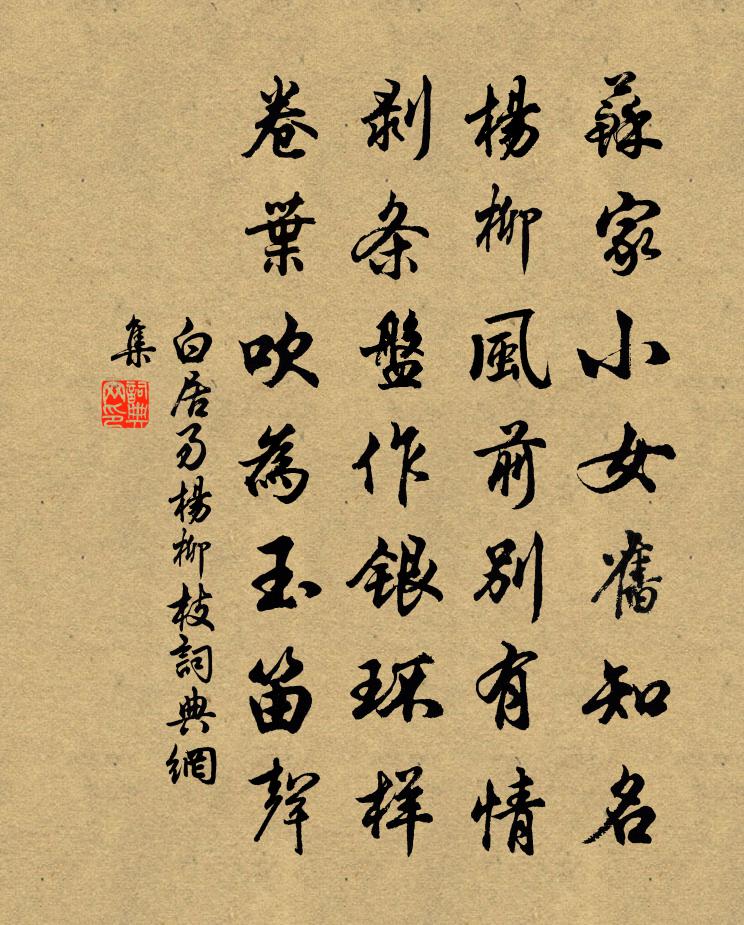 蘇家小女舊知名
楊柳風前別有情
剥条盤作銀环样
卷葉吹為玉笛聲
白居易楊柳枝詞典網
集
詞典
网印